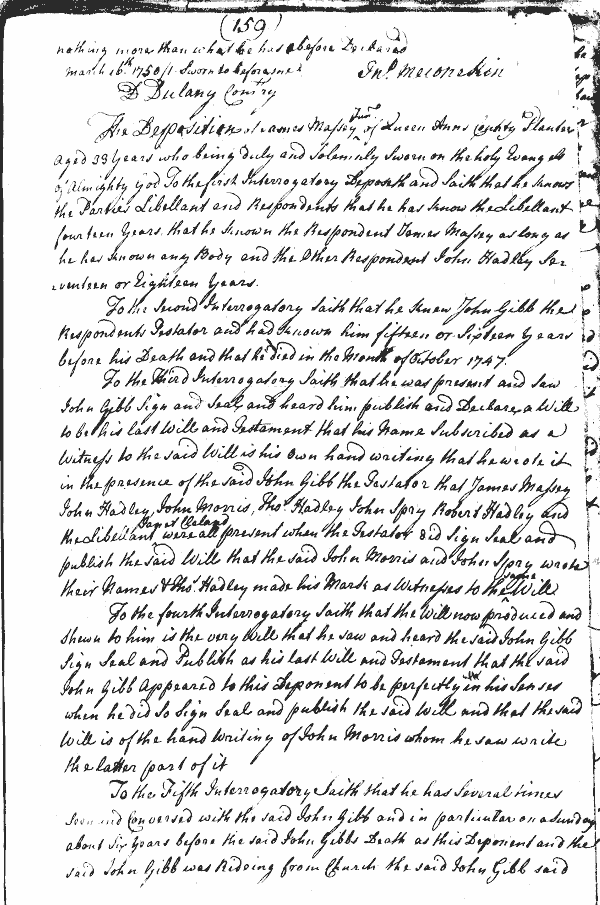 (159)
nothing more than what he has before Declared
March 16th. 1750/1 Sworn to before me
D Dulany Comry
The Deposition of James Massey Junr. of Queen Anns County Planter
aged 33 Years who being duly and Solemnly Sworn on the holy Evangels
of Almighty God To the first Interrogatory Deposeth and Saith that he knows
the Parties Libellant and Respondents that he has know the Libellant
fourteen Years. that he known the Respondent James Massey as long as
he has known any Body and the Other Respondent John Hadley Se-
-venteen or Eighteen Years.
To the Second Interrogatory Saith that he knew John Gibb the
Respondents Testator and had known him fifteen or Sixteen Years
before his Death and that he died in the Month of October 1747.
To the Third Interrogatory Saith that he was present and saw
John Gibb Sign and Seal, and heard him publish and Declare a Will
to be his last Will and Testament that his Name Subscribed as a
Witness to the said Will is his own hand writing that he wrote it
in the presence of the said John Gibb the Testator that James Massey
John Hadley, John Morris, Thos. Hadley John Spry Robert Hadley and
the Libellant Janet Cleland were all present when the Testator did Sign Seal and
publish the said Will that the said John Morris and John Spry wrote
their Names & Thos. Hadley made his Mark as Witnesses to the same Will
To the fourth Interrogatory Saith that the Will now produced and
shewn to him is the very Will that he saw and heard the said John Gibb
Sign Seal and Publish as his last Will and Testament that the said
John Gibb Appeared to this Deponent to be perfectly in his Senses
when he did So Sign Seal and publish the said Will and that the said
Will is of the hand Writing of John Morris whom he saw write
the latter part of it
To the Fifth Interrogatory Saith that he has Several times
Seen and Conversed with the said John Gibb and in particular on a Sunday
about Six Years before the said John Gibbs Death as this Deponent and the
said John Gibb was Rideing from Church the said John Gibb said